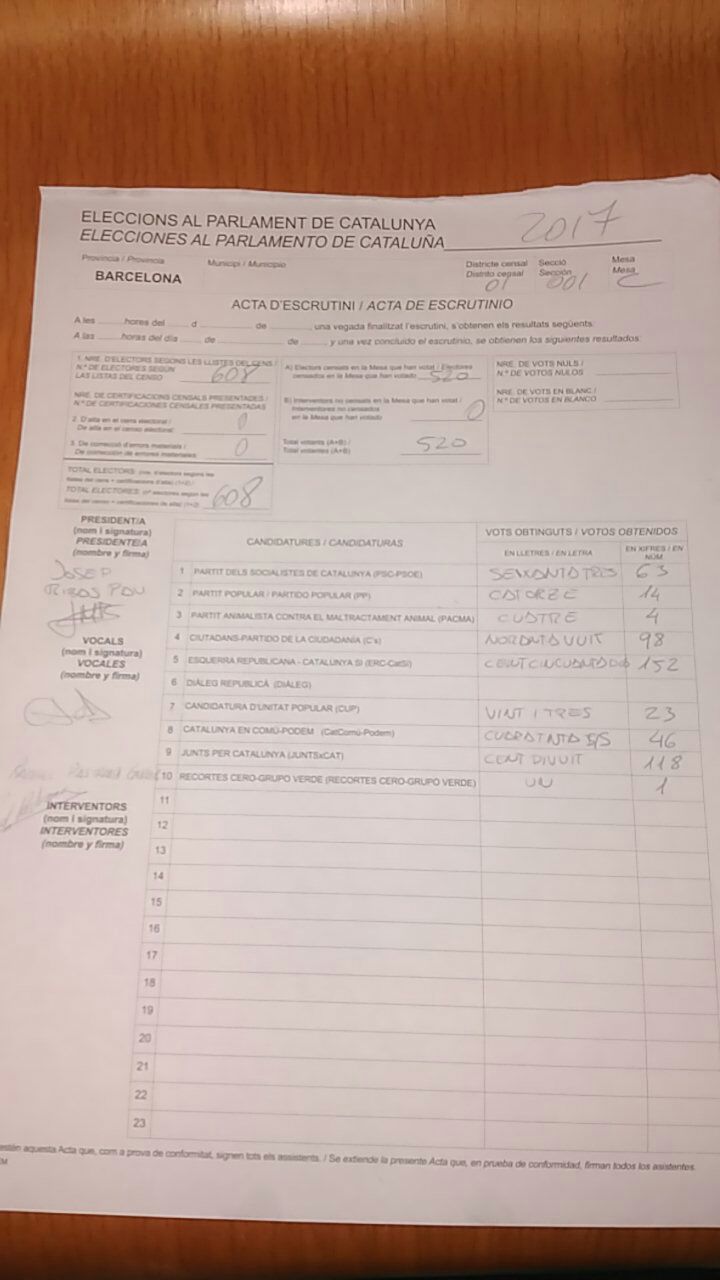 ELECCIONS AL PARLAMENT DE CATALUNYA 2017
ELECCIONES AL PARLAMENTO DE CATALUÑA
Provincia / Provincia Municipi / Municipio Districte censal Secció Mesa
BARCELONA Distrito censal Sección Mesa
01 001 C
ACTA D'ESCRUTINI / ACTA DE ESCRUTINIO
A les hores del d de , una vegada finalitzat l'escrutini, s'obtenen els resultats següents:
A las horas del día de de y una vez concluido el escrutinio, se obtienen los siguientes resultados:
1. NRE. D'ELECTORS SEGONS LES LLISTES DEL CENS /
N.º DE ELECTORES SEGÚN
LAS LISTAS DEL CENSO 608
NRE. DE CERTIFICACIONS CENSALS PRESENTADES /
N.º CERTIFICACIONES CENSALES PRESENTADAS
2. D'alta en el cens electoral /
De alta en el censo electoral: 0
3. De correcció d'errors materials /
De corrección de errores materiales: 0
TOTAL ELECTORS: 
TOTAL ELECTORES: 608
A) Electors censats en la Mesa que han votat / Electores
censados en la Mesa que han votado 520
B) Interventors no censats en la Mesa que han votat /
Interventores no censados
en la Mesa que han votado 0
Total votants (A+B) /
Total votantes (A+B) 520
NRE. DE VOTS NULS /
N.º DE VOTOS NULOS
NRE. DE VOTS EN BLANC /
N.º DE VOTOS EN BLANCO
PRESIDENT/A
(nom i signatura)
PRESIDENTE/A
(nombre y firma)
JOSEP
VOCALS
(nom i signatura)
VOCALES
(nombre y firma)
INTERVENTORS
(nom i signatura)
INTERVENTORES
(nombre y firma)
CANDIDATURES / CANDIDATURAS
VOTS OBTINGUTS / VOTOS OBTENIDOS
EN LLETRES / EN LETRA EN XIFRES / EN NÚM.
1 PARTIT DELS SOCIALISTES DE CATALUNYA (PSC-PSOE) SEIXANTA TRES 63
2 PARTIT POPULAR / PARTIDO POPULAR (PP) CATORZE 14
3 PARTIT ANIMALISTA CONTRA EL MALTRACTAMENT ANIMAL (PACMA) CUATRE 4
4 CIUTADANS-PARTIDO DE LA CIUDADANÍA (C's) NORANTA VUIT 98
5 ESQUERRA REPUBLICANA - CATALUNYA SÍ (ERC-CatSí) CENT CINCUANTA DOS 152
6 DIÀLEG REPUBLICÀ (DIÀLEG)
7 CANDIDATURA D'UNITAT POPULAR (CUP) VINT I TRES 23
8 CATALUNYA EN COMÚ-PODEM (CatComú-Podem) 46
9 JUNTS PER CATALUNYA (JUNTSxCAT) CENT DIVUIT 118
10 RECORTES CERO-GRUPO VERDE (RECORTES CERO-GRUPO VERDE) UN 1
11
12
13
14
15
16
17
18
19
20
21
22
23
estén aquesta Acta que, com a prova de conformitat, signen tots els assistents. / Se extiende la presente Acta que, en prueba de conformidad, firman todos los asistentes.